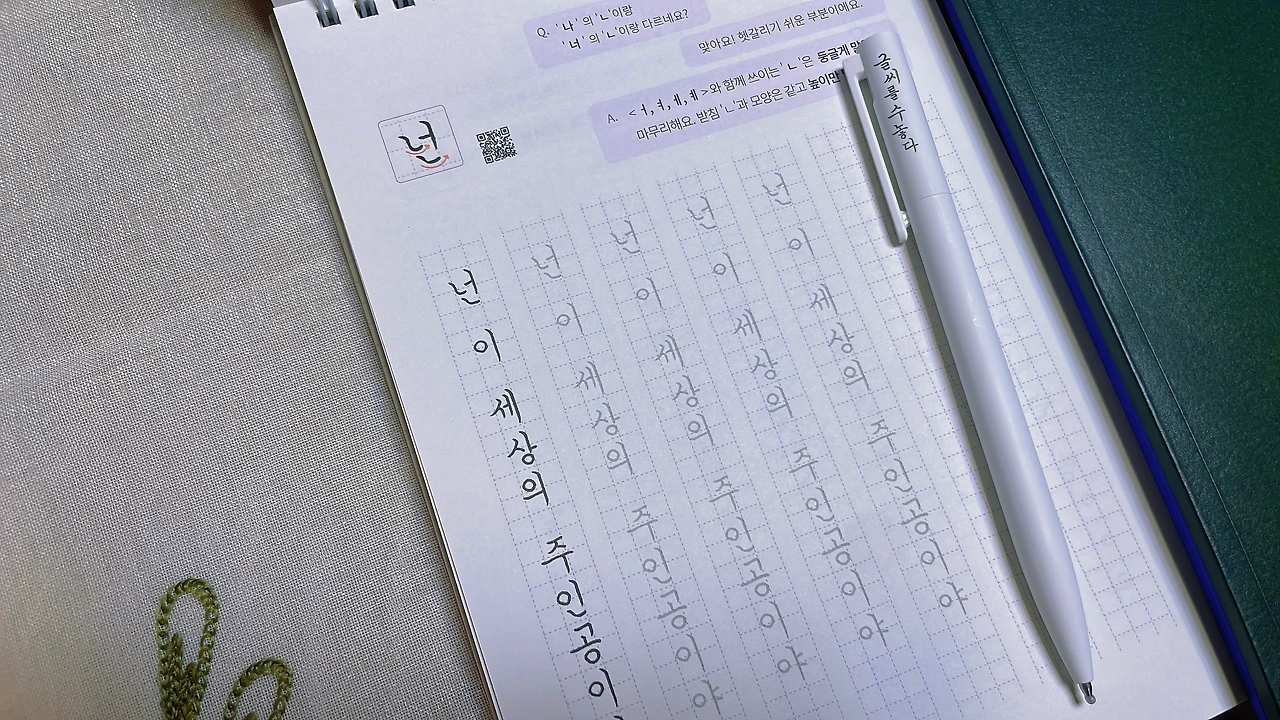 Q. '나' 의 'ㄴ'이랑
'너' 의 'ㄴ'이랑 다르네요?
맞아요! 헷갈리기 쉬운 부분이에요.
A. <ㅓ,ㅕ,ㅔ,ㅖ>와 함께 쓰이는 'ㄴ'은 둥글게
마무리해요. 받침 'ㄴ'과 모양은 같고 높이만
넌
넌 이 세상의 주인공이
넌 이 세상의 주인공이야
넌 이 세상의 주인공이야
넌 이 세상의 주인공이야
넌 이 세상의 주인공이야
글씨를 수놓다